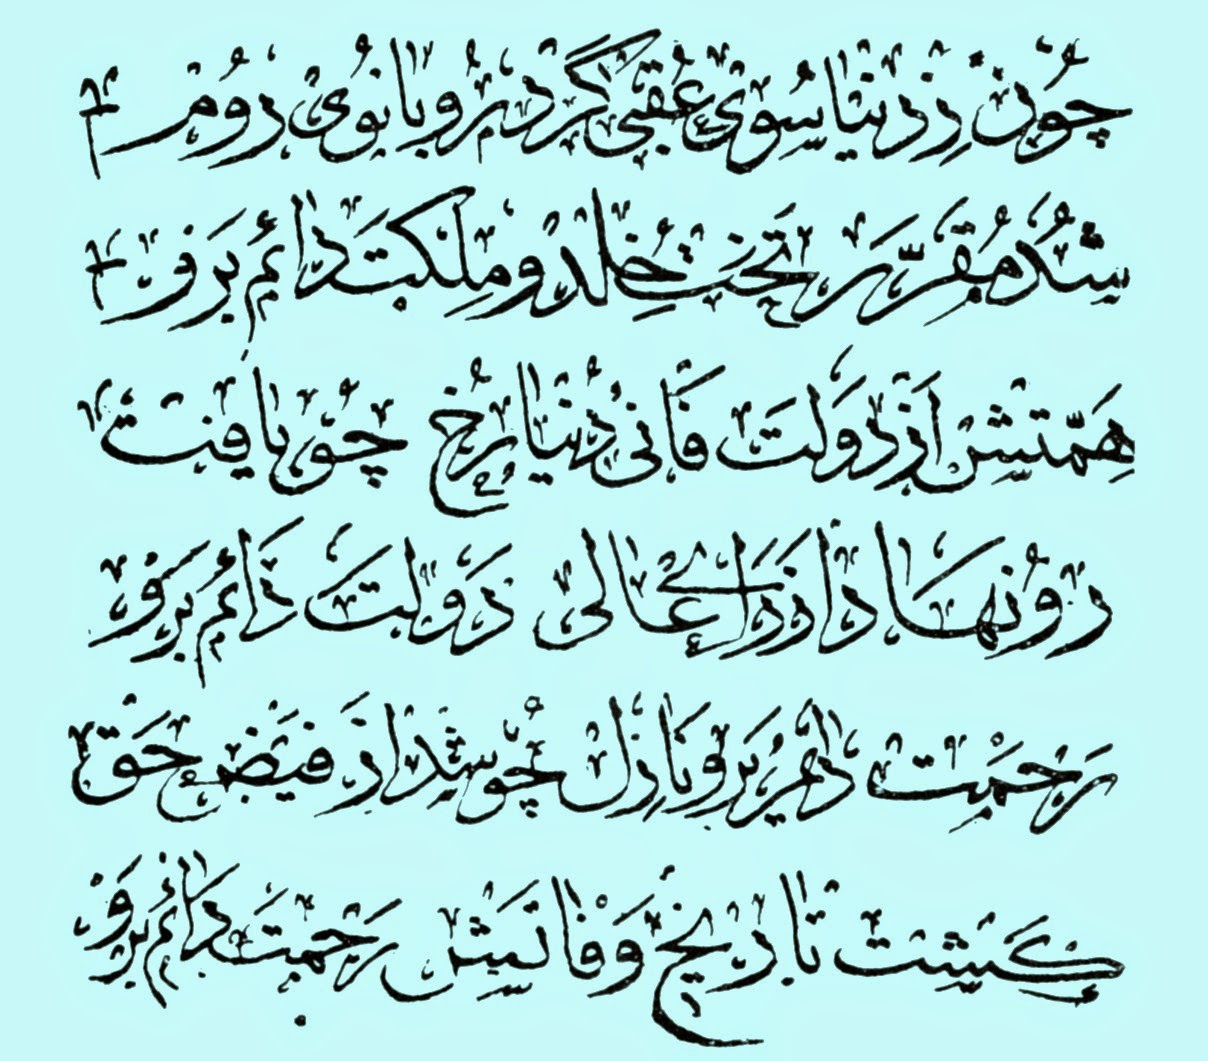 چون ز دنیا سوی عقبی کرد رو بانوی روم
شد مقرر تخت خلد و ملکت دائم برو
همتش از دولت فانی دنیا رخ چو تافت
رو نهاد از رای عالی دولت دائم برو
رحمت دائم برو نازل چو شد از فیض حق
گشت تاریخ وفاتش رحمت دائم برو